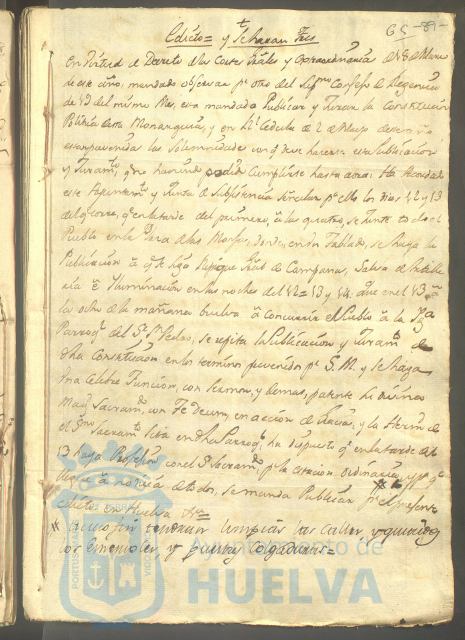 65 - 89 -
Edicto = y se haran tres
En Virtud de Decreto de las Cortes Grales y Extraordinarias de 18 de Marzo
de este año, mandado observar pr otro del Supmo Consejo de Regencia
de 19 del mismo Mes, esta mandado Publicar y Jurar la Constitucion
Politica de la Monarquia, y en Rl Cedula de 2 de Mayo
estan prevenidas las solemnidades con q̃ deve hacerse esta Publicacion
y Juramto, q̃ no haviendo podido cumplirse hasta aora: Ha acordado
este Ayuntamto y Junta de Subsistencia señalar pa ello los dias 12 y 13
del q̃ corre, q̃ en la tarde del primero, a las quatro, se junte todo el
Pueblo en la Plaza de las Monjas, donde, en un Tablado, se haga la
Publicacion a q̃ se siga Repique Gral de Campanas, Salva de Artille
ria e Iluminacion en las noches del 12 = 13 y 14: que en el 13 a
las ocho de la mañana buelva a concurrir el Pueblo a la Yga
Parroql del Sr Sn Pedro, se repita la Publicacion y Juramto de
dha Constitucion en los terminos prevenidos pr S. M. y se haga
una celebre Funcion, con Sermon, y demas, patente la Divina
Magd Sacramdo con Te Deum, en accion de Gracias, y la Hermd de
el Smo Sacramto sita en dha Parroql ha dispuesto q̃ en la tarde del
13 haya Procesion con el Sr Sacramdo pr la estacion ordinaria, y pa q̃
llegue a noticia de todos, se manda Publicar pr el presente
edicto en Huelva
# a cuyo fin tendran limpias las calles y quitados
los Enemoles, y puestas colgaduras =
Ayuntamiento de
HUELVA